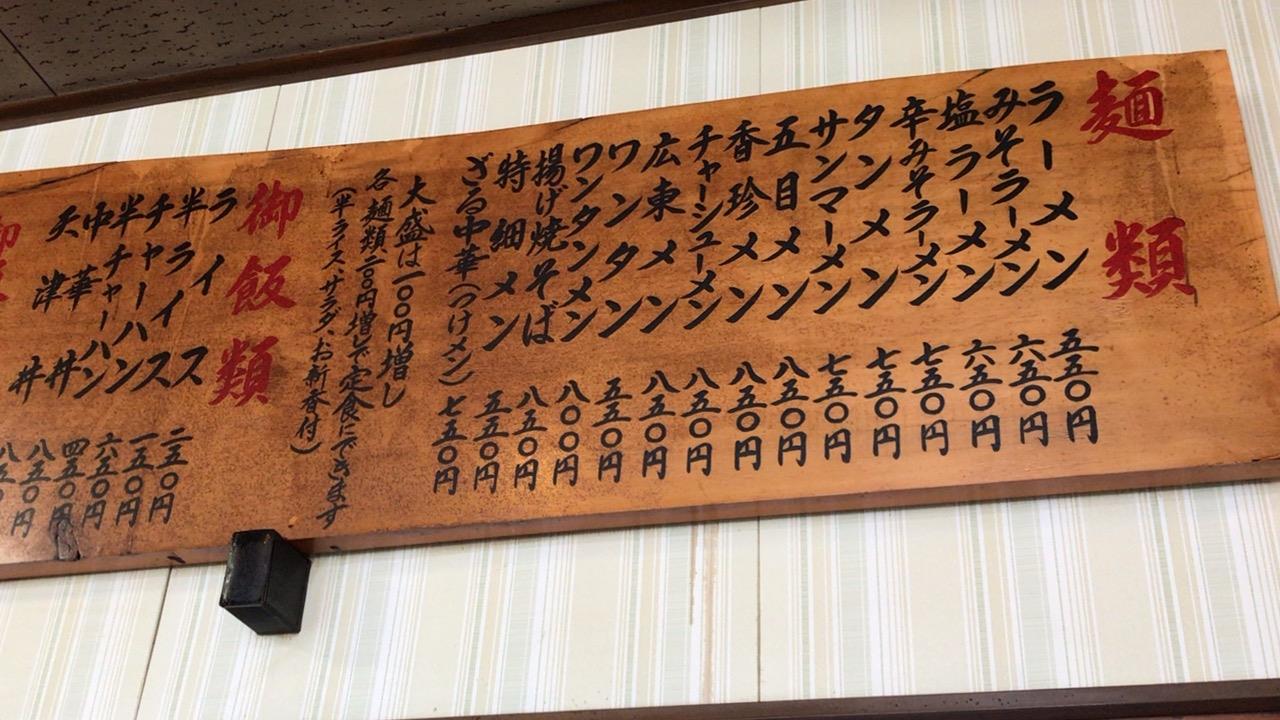 麺類
ラーメン 五五〇円
みそラーメン 六五〇円
塩ラーメン 六五〇円
辛みそラーメン 七五〇円
タンメン 七五〇円
サンマーメン 七五〇円
五目メン 八五〇円
香珍メン 八五〇円
チャーシューメン 八五〇円
広東メン 八五〇円
ワンタン 五五〇円
ワンタンメン 八〇〇円
揚げ焼そば 八五〇円
特細メン 五五〇円
ざる中華(つけメン) 七五〇円
大盛は一〇〇円増し
各麺類、二〇〇円増しで定食にできます
(半ライス、サラダ、お新香付)
御飯類
ライス 二五〇円
半ライス 一五〇円
チャーハン 六五〇円
半チャーハン 四五〇円
中華丼 八五〇円
天津丼 八五〇円
御